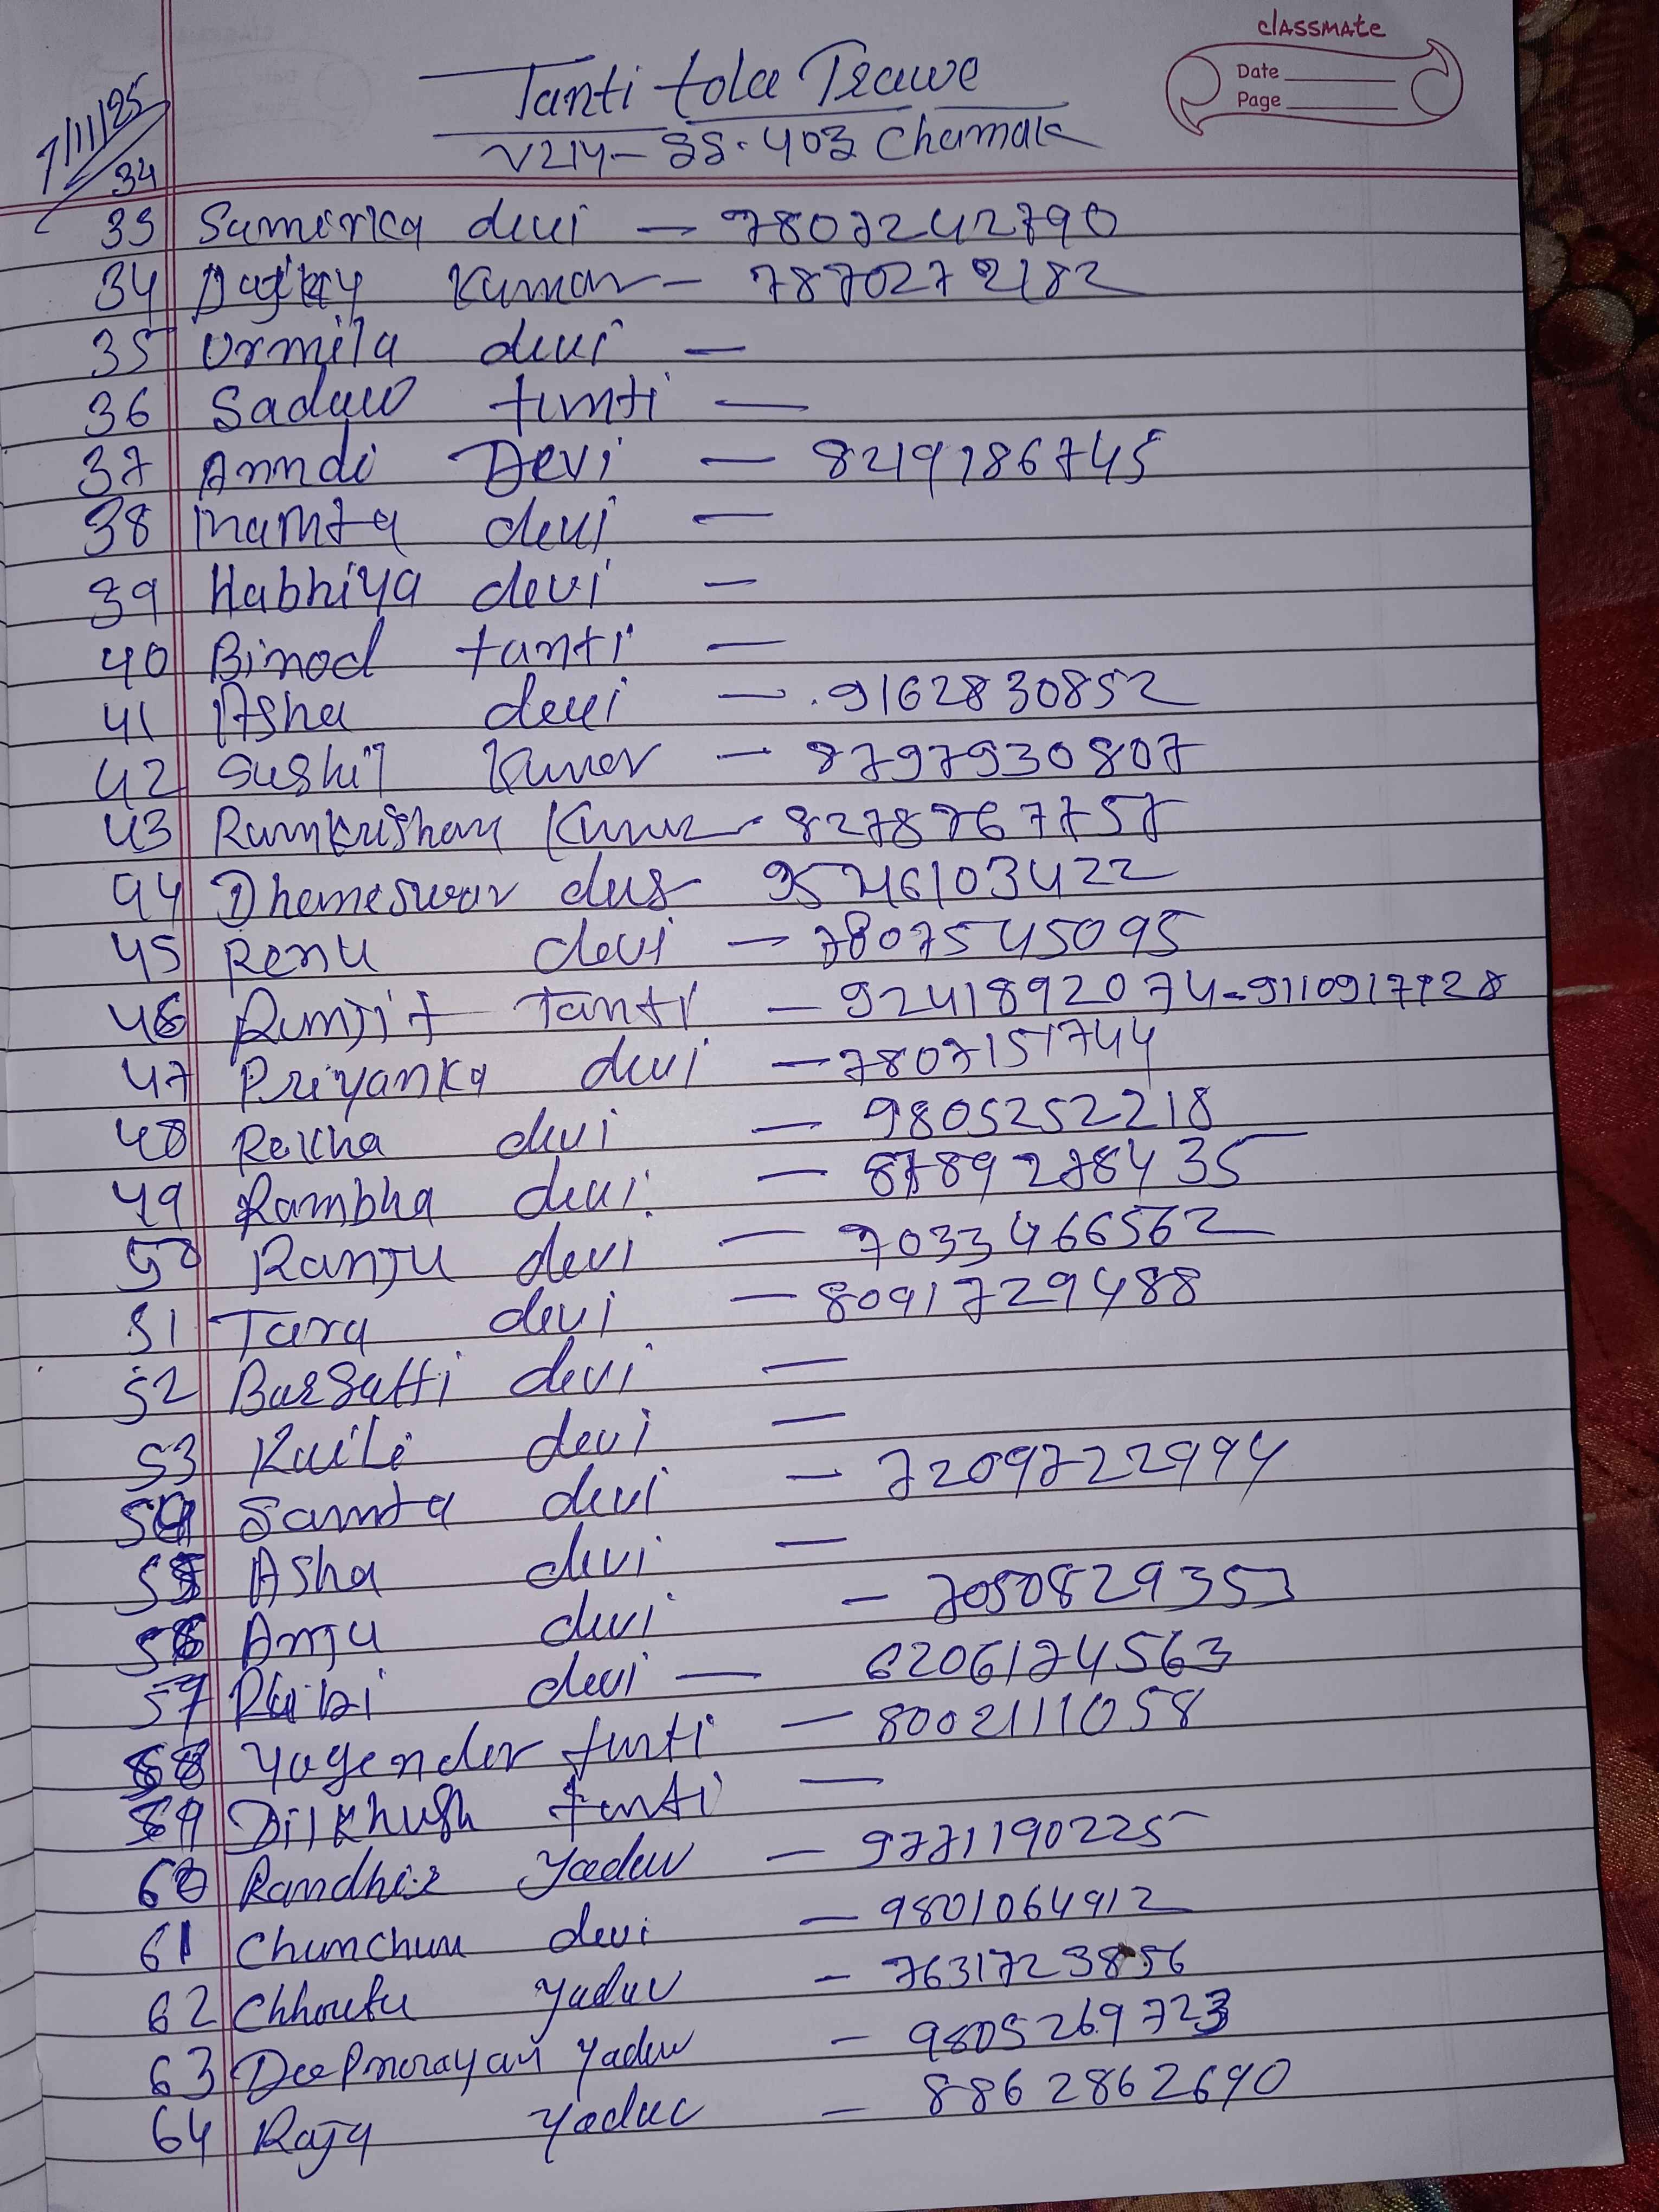 classmate
Date
Page
7/11/25
Tanti tola Trawe
V214-SS-403 Chamak
34
33 Samerica devi - 7807242790
34 Kumar - 7870272182
35 Urmila devi -
36 Sadauo tunti -
37 Anndi Devi - 8219786745
38 mamta devi -
39 Habhiya devi -
40 Binod tanti -
41 Asha devi - 9162830852
42 Sushil Kumar - 8797930807
43 Ramkrishan Kumar - 8278767757
44 Dhameswar das - 9546103422
45 Renu devi - 7807545095
46 Rimjit Tanti - 9241892074-9110917728
47 Priyanka devi - 7807151744
48 Rekha devi - 9805252218
49 Rambha devi - 8789278435
50 Ranju devi - 7033466562
51 Tara devi - 8091729488
52 Barsatti devi -
53 Kaili devi -
54 Samta devi - 7209722994
55 Asha devi -
56 Anju devi - 7050829353
57 devi - 6206174563
58 Yogender tunti - 8002111058
59 Dilkhush tanti -
60 Randhir Yadav - 9771190225
61 Chunchun devi - 9801064912
62 Chhoutu Yadav - 7631723856
63 Deepnarayan Yadav - 9805269723
64 Raja Yadav - 8862862690